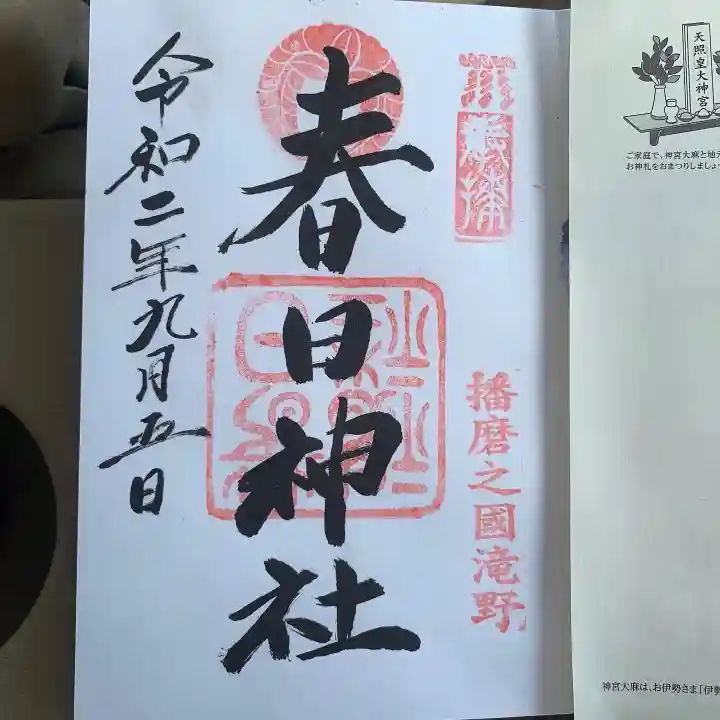 播磨之國滝野
春日神社
令和二年九月五日
天照皇大神宮
ご家庭で、神宮大麻と地元
お神札をおまつりしましょ
神宮大麻は、お伊勢さま「伊勢